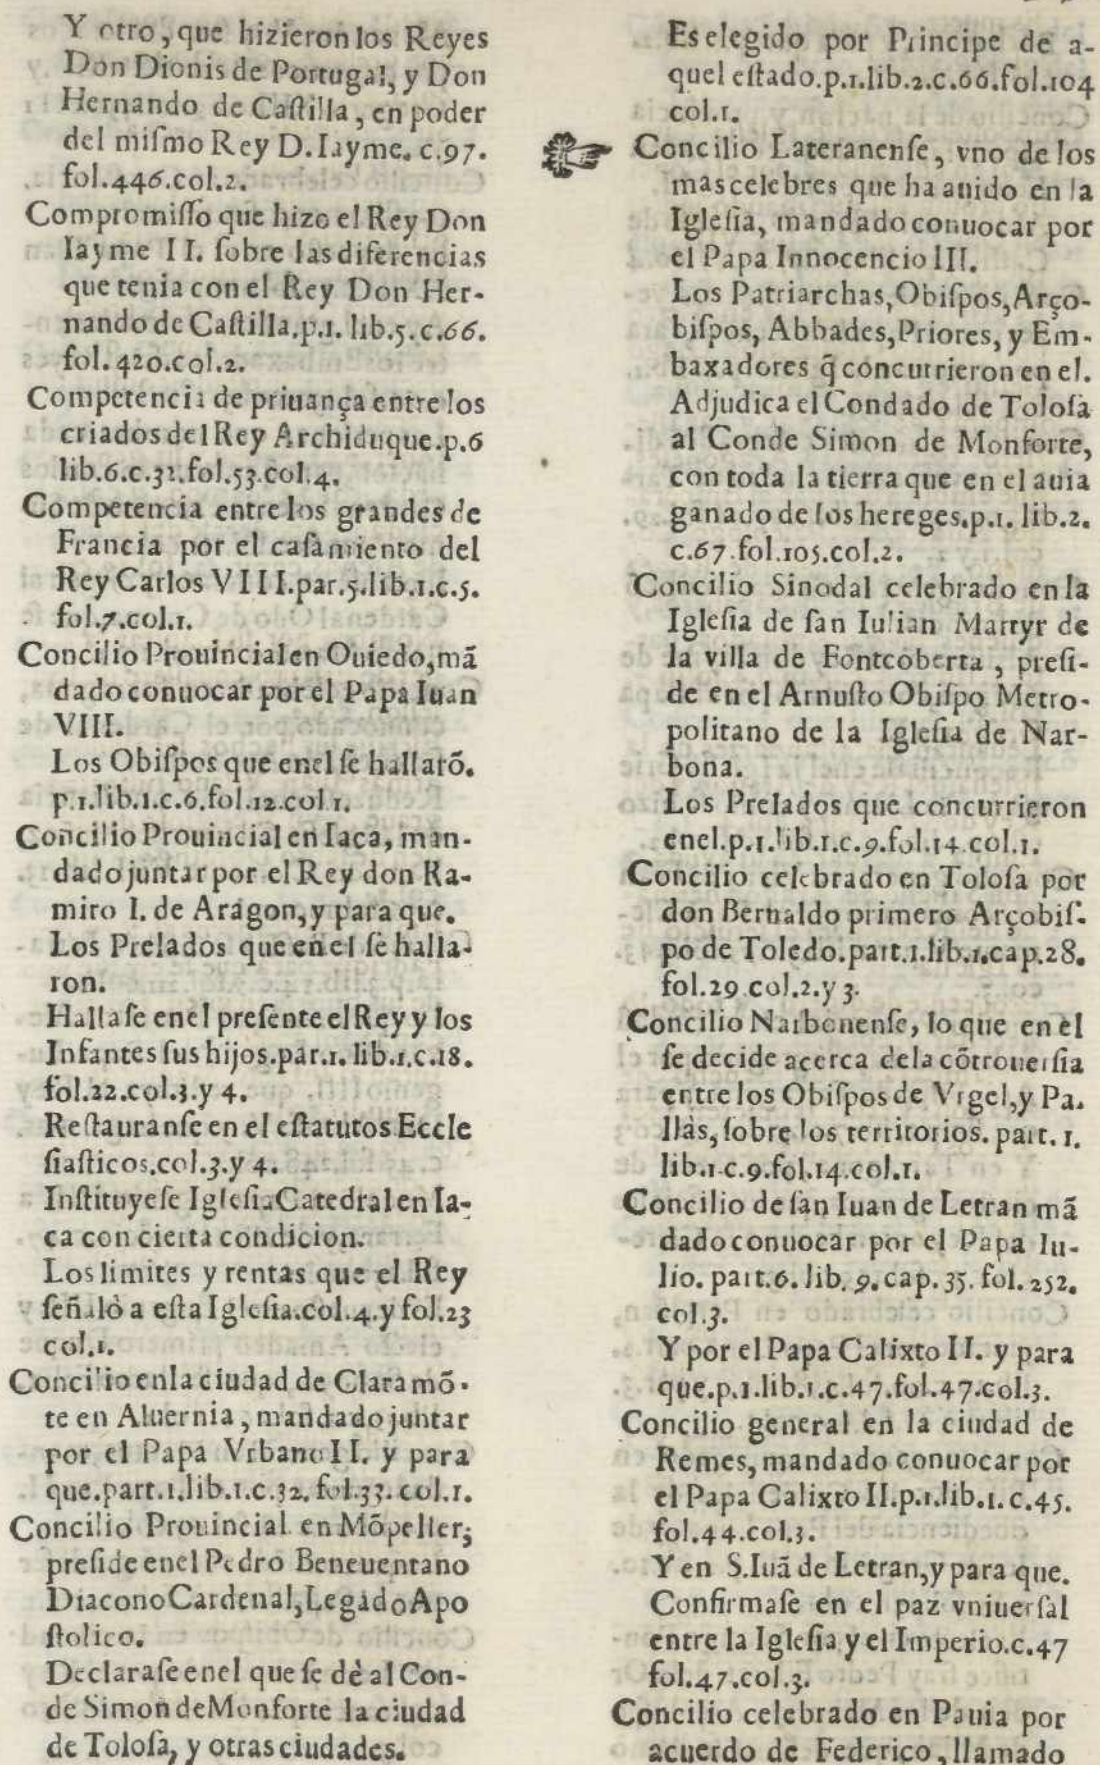 Y otro, que hizieron los Reyes
Don Dionis de Portugal, y Don
Hernando de Caſtilla, en poder
del miſmo Rey D. Iayme. c.97.
fol.446.col.2.
Compromiſſo que hizo el Rey Don
Iayme II. ſobre las diferencias
que tenia con el Rey Don Her-
nando de Caſtilla.p.1. lib.5.c.66.
fol. 420.col.2.
Competencia de priuança entre los
criados del Rey Archiduque.p.6
lib.6.c.32.fol.53.col.4.
Competencia entre los grandes de
Francia por el caſamiento del
Rey Carlos VIII.par.5.lib.1.c.5.
fol.7.col.1.
Concilio Prouincial en Ouiedo,mã
dado conuocar por el Papa Iuan
VIII.
Los Obiſpos que enel ſe hallarõ.
p.1.lib.1.c.6.fol.12.col 1.
Concilio Prouincial en Iaca, man-
dado juntar por el Rey don Ra-
miro I. de Aragon, y para que.
Los Prelados que en el ſe halla-
ron.
Hallaſe enel preſente el Rey y los
Infantes ſus hijos.par.1. lib.1.c.18.
fol.22.col.3.y 4.
Reſtauranſe en el eſtatutos Eccle
ſiaſticos.col.3.y 4.
Inſtituyeſe Igleſia Catedral en Ia-
ca con cierta condicion.
Los limites y rentas que el Rey
ſeñalò a eſta Igleſia.col.4.y fol.23
col.1.
Concilio enla ciudad de Claramõ-
te en Aluernia, mandado juntar
por el Papa Vrbano II. y para
que.part.1.lib.1.c.32. fol.33. col.1.
Concilio Prouincial en Mõpeller;
preſide enel Pedro Beneuentano
Diacono Cardenal, Legado Apo
ſtolico.
Declaraſe enel que ſe dè al Con-
de Simon de Monforte la ciudad
de Toloſa, y otras ciudades.
Es elegido por Principe de a-
quel eſtado.p.1.lib.2.c.66.fol.104
col.1.
Concilio Lateranenſe, vno de los
mas celebres que ha auido en la
Igleſia, mandado conuocar por
el Papa Innocencio III.
Los Patriarchas, Obiſpos, Arço-
biſpos, Abbades, Priores, y Em-
baxadores q̃ concurrieron en el.
Adjudica el Condado de Toloſa
al Conde Simon de Monforte,
con toda la tierra que en el auia
ganado de los hereges.p.1. lib.2.
c.67.fol.105.col.2.
Concilio Sinodal celebrado en la
Igleſia de ſan Iulian Martyr de
la villa de Fontcoberta, preſi-
de en el Arnuſto Obiſpo Metro-
politano de la Igleſia de Nar-
bona.
Los Prelados que concurrieron
enel.p.1.lib.1.c.9.fol.14.col.1.
Concilio celebrado en Toloſa por
don Bernaldo primero Arçobiſ-
po de Toledo.part.1.lib.1.cap.28.
fol.29.col.2.y 3.
Concilio Narbonenſe, lo que en el
ſe decide acerca dela cõtrouerſia
entre los Obiſpos de Vrgel, y Pa.
llàs, ſobre los territorios. part. 1.
lib.1.c.9.fol.14.col.1.
Concilio de ſan Iuan de Letran mã
dado conuocar por el Papa Iu-
lio. part.6. lib. 9. cap. 35. fol. 252.
col.3.
Y por el Papa Calixto II. y para
que.p.1.lib.1.c.47.fol.47.col.3.
Concilio general en la ciudad de
Remes, mandado conuocar por
el Papa Calixto II.p.1.lib.1. c.45.
fol.44.col.3.
Y en S.Iuã de Letran, y para que.
Confirmaſe en el paz vniuerſal
entre la Igleſia y el Imperio.c.47
fol.47.col.3.
Concilio celebrado en Pauia por
acuerdo de Federico, llamado